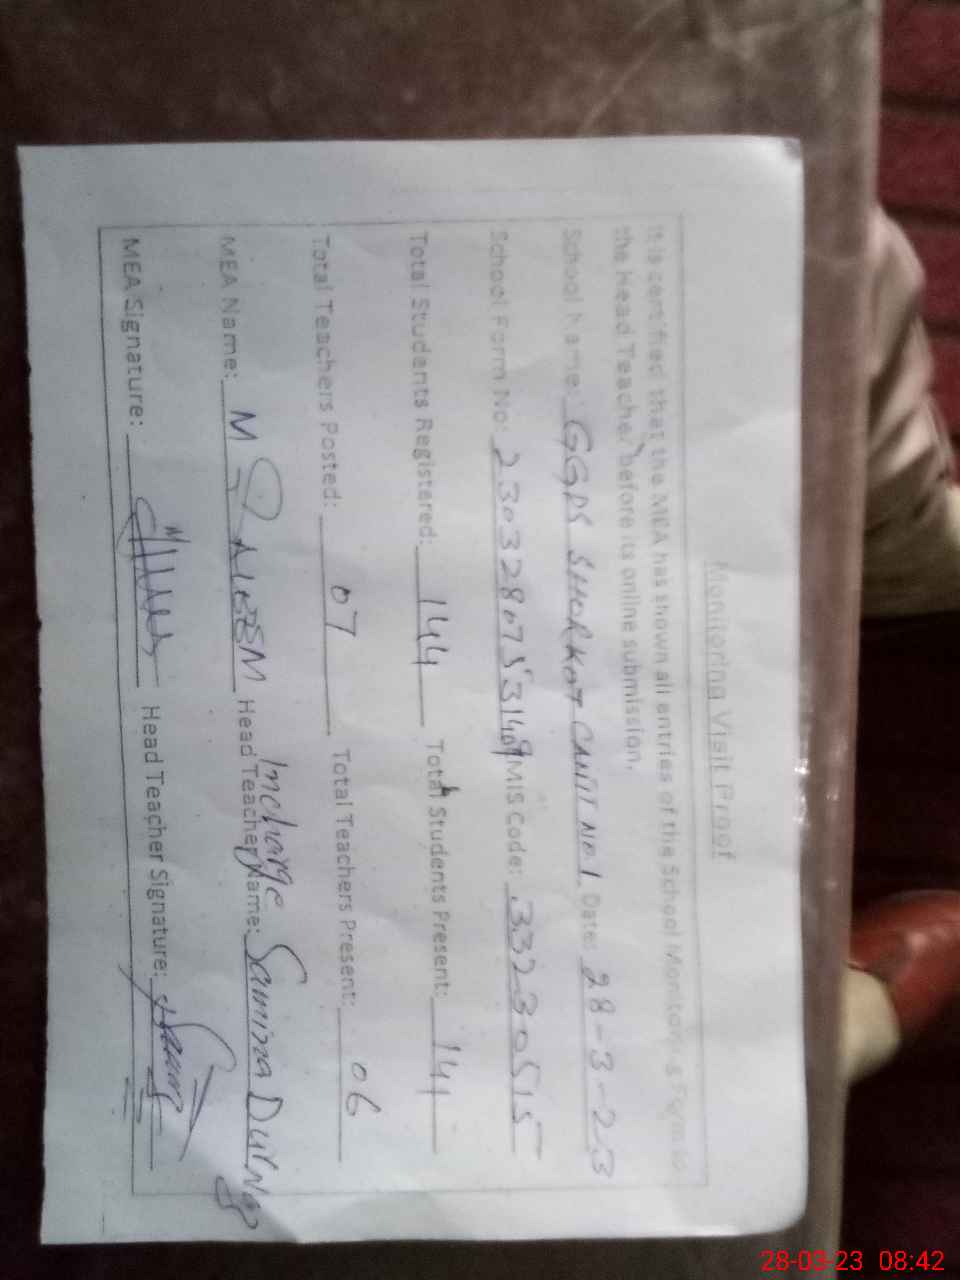 Monitoring Visit Proof
It is certified that the MEA has shown all entries of the School Monitoring Form to
the Head Teacher before its online submission.
School Name: GGPS SHORKOT CANTT NO.1 Date: 28-3-23
School Form No: EMIS Code: 33230515
Total Students Registered: 144 Total Students Present: 141
Total Teachers Posted: 07 Total Teachers Present: 06
Incharge
MEA Name: M Head Teacher Name: Samina
MEA Signature: Head Teacher Signature:
28-03-23 08:42